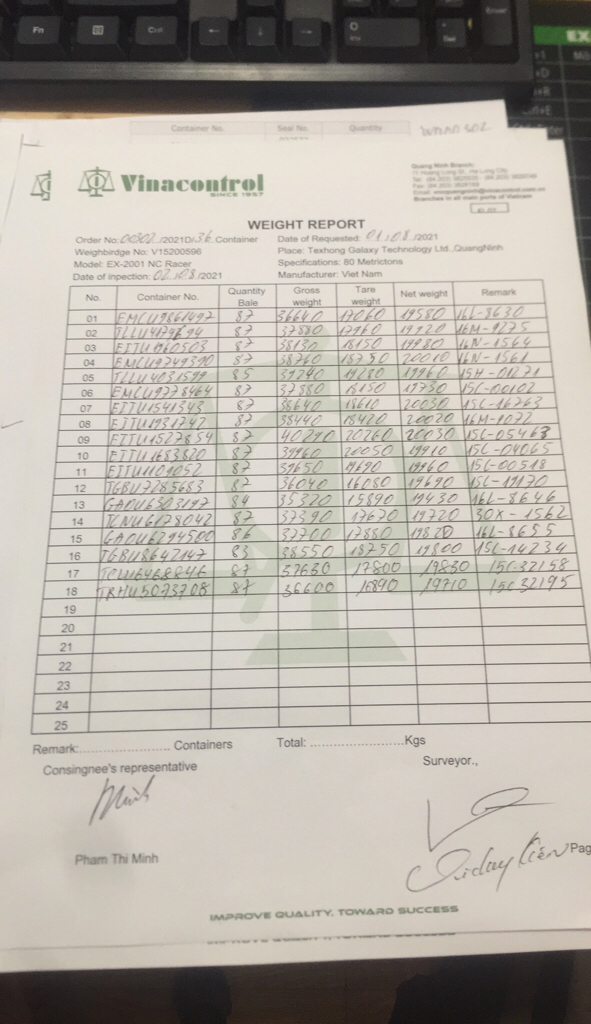 Fn
Ctrl
Enter
Del
EX
Container No. Seal No. Quantity
Vinacontrol
SINCE 1957
Quang Ninh Branch:
Branches in all main ports of Vietnam
WEIGHT REPORT
Order No: /2021DI/36 Container Date of Requested: 01/08/2021
Weighbirdge No: V15200596 Place: Texhong Galaxy Technology Ltd.,QuangNinh
Model: EX-2001 NC Racer Specifications: 80 Metrictons
Date of inpection: 02/08/2021 Manufacturer: Viet Nam
No. Container No. Quantity Bale Gross weight Tare weight Net weight Remark
01 EMCU9861497 87 36640 17060 19580 16L-8630
02 87 37880 17960 19920 16M-9275
03 EITU1960503 87 38130 18150 19980 16N-1564
04 EMCU9749390 87 38760 18750 20010 16N-1561
05 TLLU4031599 85 39240 19280 19960 15H-01271
06 EMCU9778464 87 37880 18150 19730 15C-00102
07 EITU1541343 87 38640 18610 20030 15C-16763
08 EITU1931742 87 38440 18420 20020 16M-1072
09 EITU1527834 87 40290 20260 20030 15C-05463
10 EITU1683820 87 39960 20050 19910 15C-04065
11 EITU1101052 87 39650 19690 19960 15C-00518
12 TGBU7285683 87 36040 19690 15C-19170
13 GAOU6303197 84 35320 15890 19430 16L-8646
14 TCNU6178042 87 37390 17670 19720 30X-1562
15 GAOU6294500 86 37700 17880 19820 16L-8655
16 TGBU8642147 83 38550 18750 19800 15C-14234
17 87 37630 17800 19830 15C-32158
18 TRHU5073708 87 36600 16890 19710 15C32195
19
20
21
22
23
24
25
Remark:........................ Containers Total: ........................Kgs
Consingnee's representative Surveyor.,
Minh
Pham Thi Minh
Pag
IMPROVE QUALITY, TOWARD SUCCESS